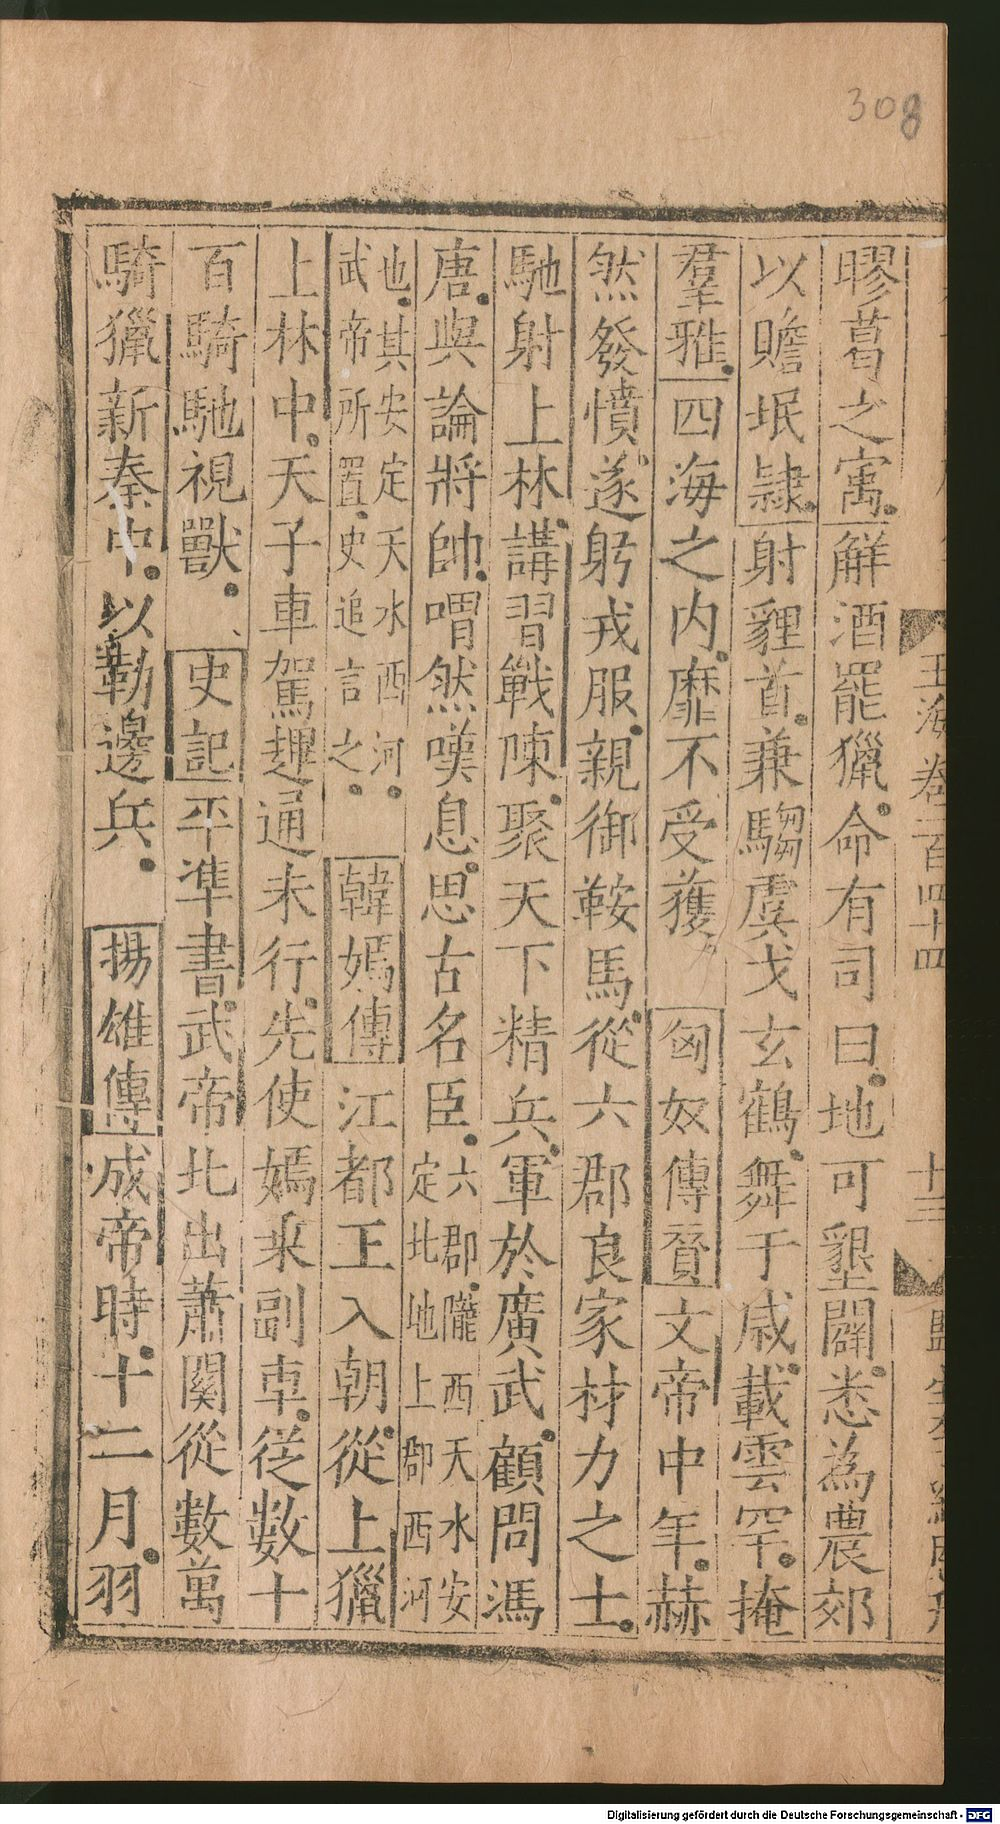 308
玉海卷二百四十四
十三
膠葛之寓。解酒罷獵。命有司曰。地可墾闢。悉為農郊
以贍氓隷。射貍首。兼騶虞弋玄鶴。舞干戚。載雲䍐。掩
羣雅。四海之內。靡不受獲 匈奴傳贊文帝中年。赫
然發憤。遂躬戎服。親御鞍馬。從六郡良家材力之士。
馳射上林。講習戰陳。聚天下精兵。軍於廣武。顧問馮
唐。與論將帥。喟然嘆息。思古名臣。六郡。隴西天水安
定北地上郡西河
也。其安定天水西河。
武帝所置。史追言之。 韓嫣傳江都王入朝。從上獵
上林中。天子車駕趩通未行。先使嫣乘副車。從數十
百騎馳視獸。 史記平準書。武帝北出蕭關從數萬
騎獵新秦中。以勒邊兵。 揚雄傳成帝時。十二月。羽
Digitalisierung gefördert durch die Deutsche Forschungsgemeinschaft - DFG